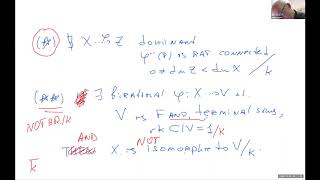 (*) ∄ X ⇢ Z DOMINANT
φ⁻¹(P) is RAT. CONNECTED
0 ≠ dim Z < dim X /k
(**) ∃ birational φ: X ⇢ V s.t.
NOT BIR/k V is F AND, terminal sing,
rk Cl V = 1/k
AND X is NOT isomorphic to V/k.
k̄